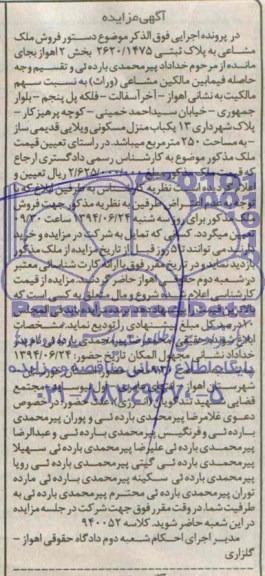 آگهی مزایده
در پرونده اجرایی فوق الذکر موضوع دستور فروش ملک
مشاعی به پلاک ثبتی ۲۶۲۰/۱۴۷۵ بخش ۲ اهواز بجای
مانده از مرحوم خداداد پیرمحمدی بارده ئی و تقسیم وجه
حاصله فیمابین مالکین مشاعی (وراث) به نسبت سهم
مالکیت به نشانی اهواز - آخر آسفالت - فلکه پل پنجم - بلوار
جمهوری - خیابان سیداحمد خمینی - کوچه پرهیزکار -
پلاک شهرداری ۱۳ یکباب منزل مسکونی ویلایی قدیمی ساز
- به مساحت ۲۵۰ مترمربع میباشد. در راستای تعیین قیمت
ملک مذکور موضوع به کارشناس رسمی دادگستری ارجاع
که قیمت ملک مذکور مبلغ ۲/۶۲۵/۰۰۰/۰۰۰ ریال تعیین و
اعلام گردیده است نظریه کارشناس به طرفین ابلاغ که با
توجه به عدم اعتراض طرفین به نظریه مذکور جهت فروش
ملک مذکور برای روز سه شنبه ۱۳۹۴/۰۶/۲۴ ساعت ۰۹/۳۰
تعیین میگردد. کسانی که تمایل به شرکت در مزایده و خرید
دارند می توانند تا ۵ روز قبل از تاریخ مزایده از ملک مذکور
بازدید نمایند و در تاریخ مقرر فوق با ارائه کارت شناسائی معتبر
در شعبه دوم حقوقی اهواز حاضر شوند. مزایده از قیمت
کارشناسی اعلام شده شروع و مال متعلق به کسی است که
بالاترین قیمت را پیشنهاد دهد برنده مزایده باید فی المجلس
۱۰ درصد کل مبلغ پیشنهادی را تودیع نماید. مشخصات
ابلاغ شونده حقیقی: پیرمحمدی بارده ئی نام پدر
خداداد نشانی مجهول المکان تاریخ حضور: ۱۳۹۴/۰۶/۲۴
شهرستان اهواز
قضایی حضور درخصوص
دعوی غلامرضا پیرمحمدی بارده ئی و پوران پیرمحمدی
بارده ئی و فرنگیس پیرمحمدی بارده ئی و عبدالرضا
پیرمحمدی بارده ئی علیرضا پیرمحمدی بارده ئی سهیلا
پیرمحمدی بارده ئی گیتی پیرمحمدی بارده ئی رویا
پیرمحمدی بارده ئی سکینه پیرمحمدی بارده ئی مارده
توران پیرمحمدی بارده ئی محترم پیرمحمدی بارده ئی به
طرفیت شما، در وقت مقرر فوق جهت شرکت در جلسه مزایده
در این شعبه حاضر شوید. کلاسه ۹۴۰۰۵۲
مدیر اجرای احکام شعبه دوم دادگاه حقوقی اهواز -
گلزاری
پایگاه اطلاع رسانی مناقصه و مزایده
۰۲۱-۸۸۳۴۹۶۷۰-۵